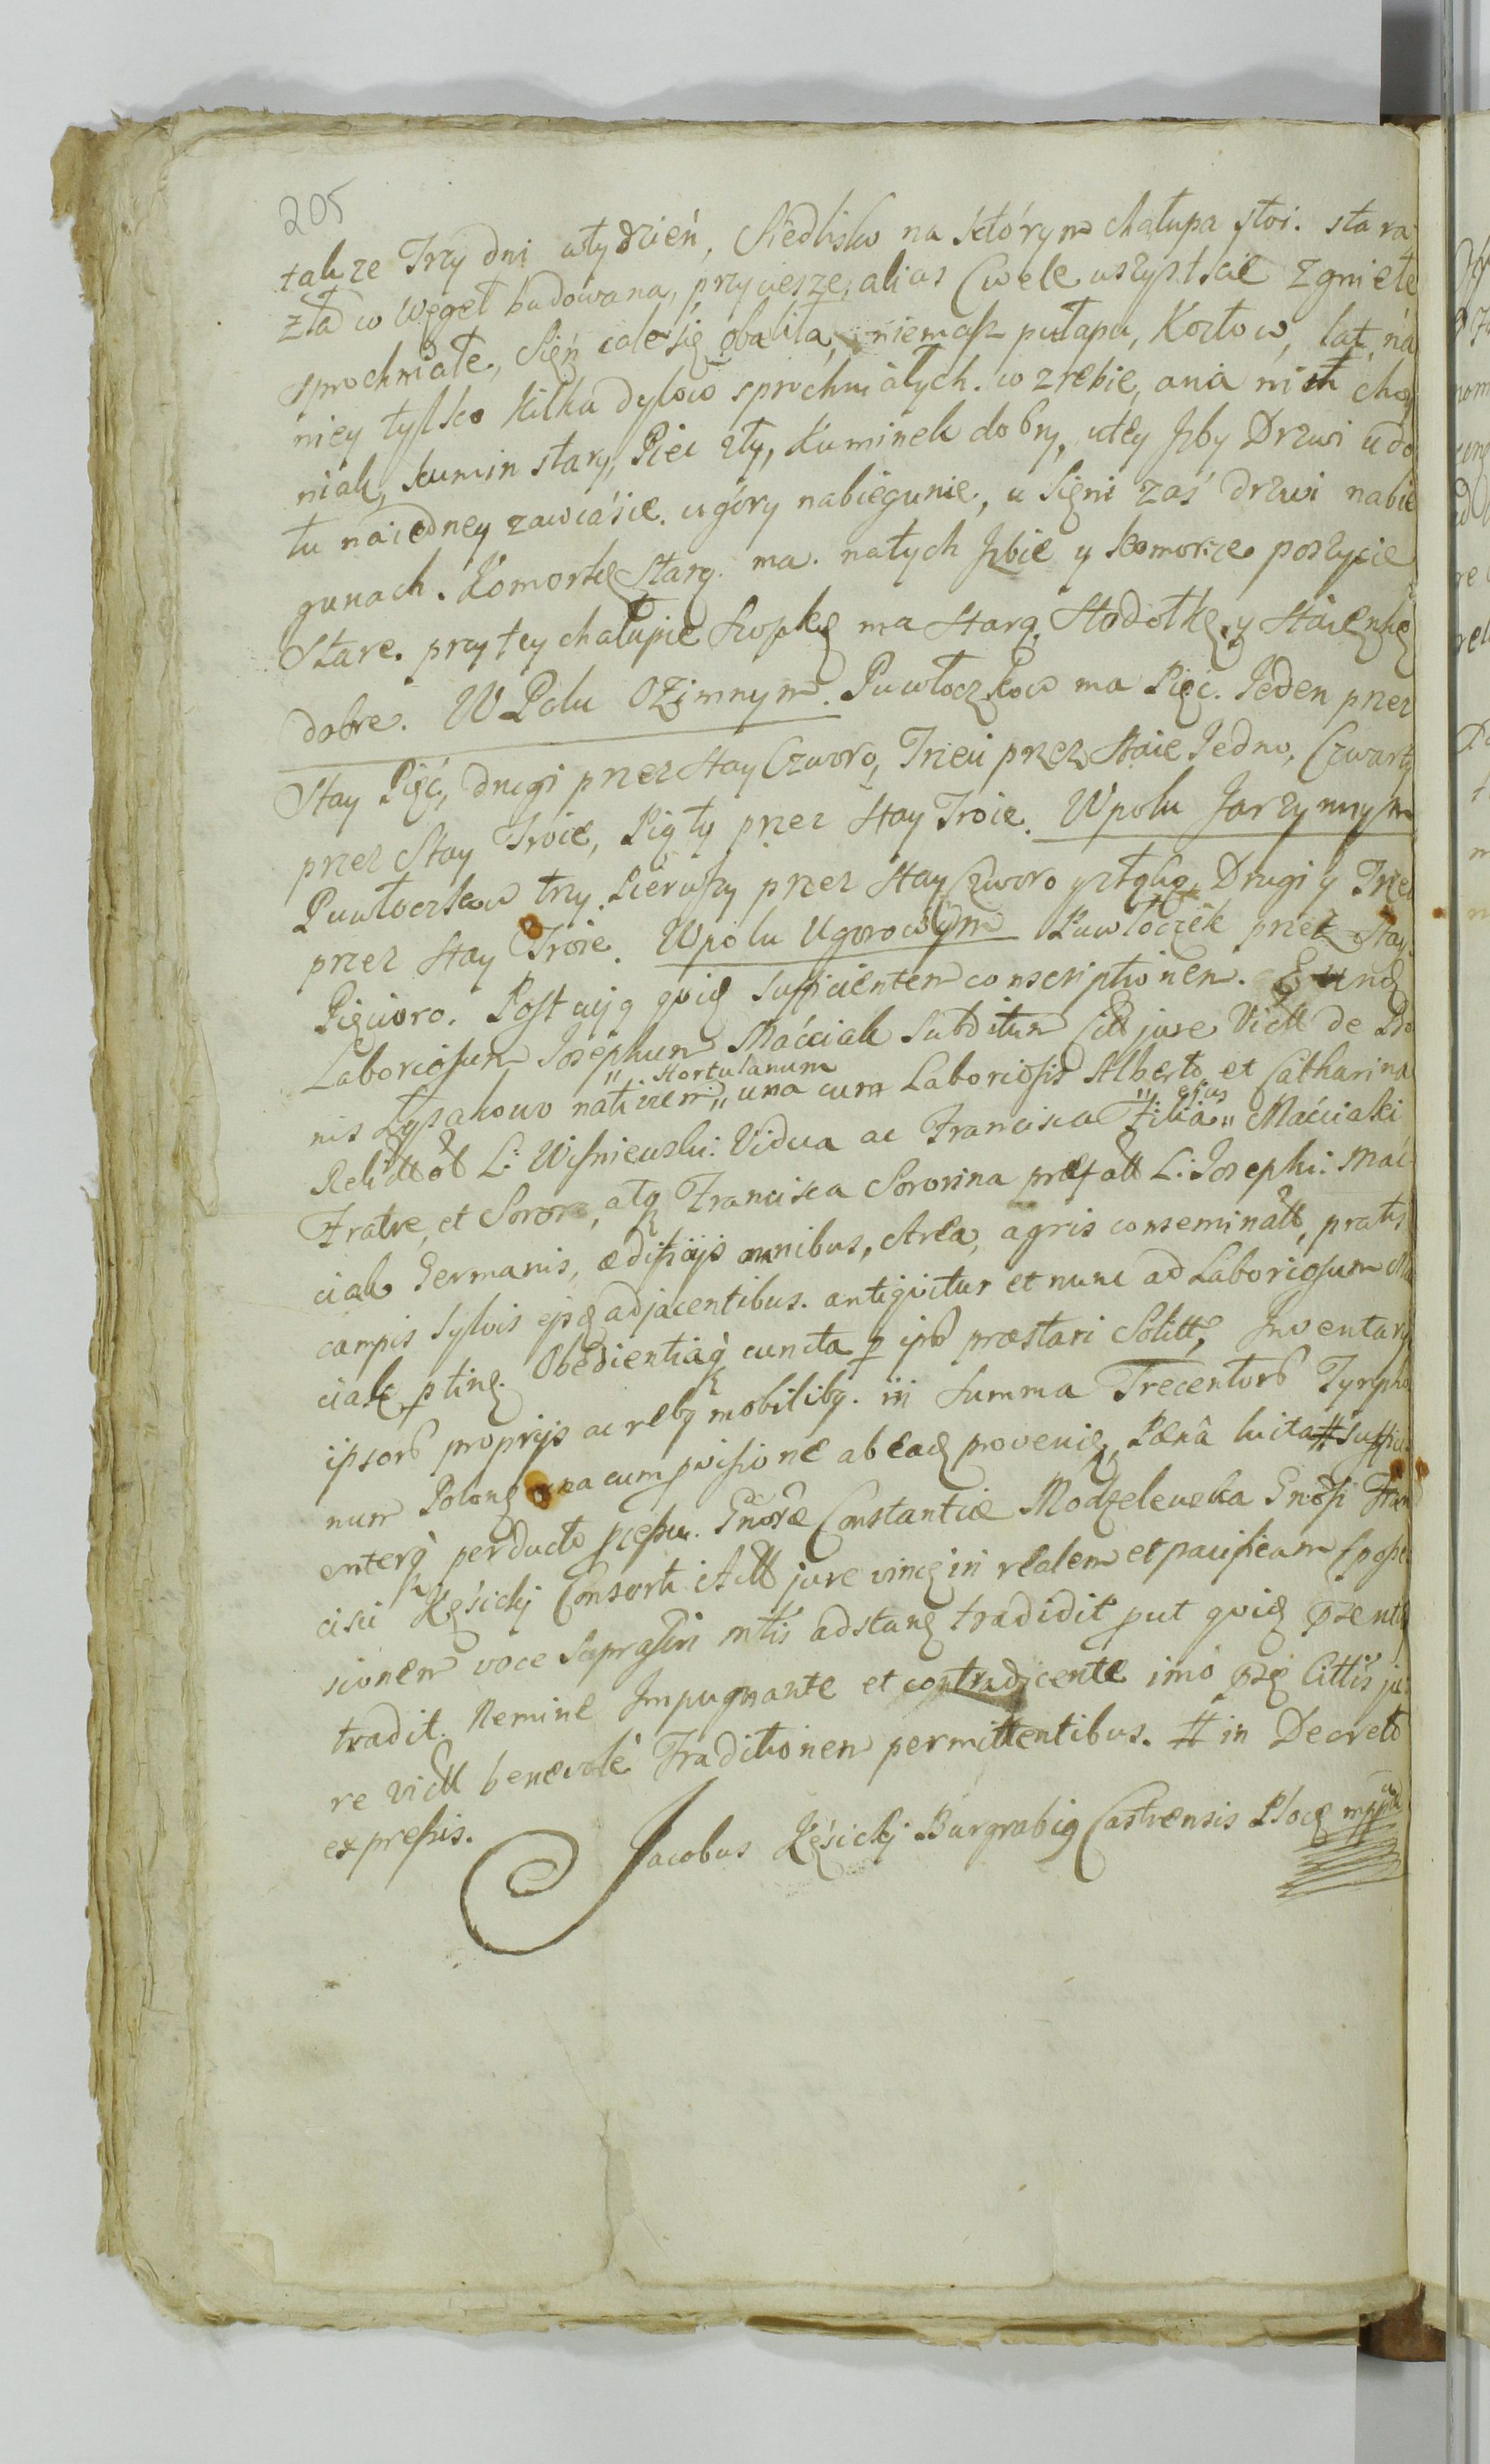 205
takze Trzy dni wtydzień, Siedlisko na którym chałupa stoi. stara
zła w węgeł budowana, przyciesze, alias Cwele wszystkie zgniełe
sprochniałe, Sień cale się obaliła, niemasz pułapu, Kozłow, łat, ná
niey tylko kilka dylow sprochniałych. w zrebie, ania nich cho
niak, kumin stary, Piec zły, Kuminek dobry, utey Jzby Drzwi udo
łu naiedney zawiásie. ugóry nabiegunie, u Sieni zaś drzwi nabie
gunach. Komorkę starą ma. natych Jzbie y komorce poszycie
Stare. przytey chałupie Szopkę ma starą, Stodołkę, y Staienkę
dobre. W Polu Ozimnym. Puwłoczkow ma Pięć. Jeden przez
Stay Pięć, drugi przez Stay Czworo, Trzeci przez Staie Jedno, Czwarty
przez Stay Troie, Piąty przez Stay Troie. Wpolu Jarzynnym
Puwłoczkow trzy. Pierwszy przez Stay Czworo Drugi y Trzeci
przez Stay Troie. Wpolu Ugorowym Puwłoczek przez Stay
Pięcioro. Post quidę sufficientem conscriptionem.
Laboriosum Josephum Maćciak Subditum Citt jure Vict de Bo
nis Łysakowo nativum „ Hortulanum „ una cum Laboriosis Alberto et Catharina
Relict ol L: Wiśniewski: Vidua ac Francisca Filia „ ejus „ Maćciaki
Fratre, et Sorore, atq Francisca Sororina præfatt L: Josephi: Mać
ciak Germanis, ædificijs omnibus, Area, agris conseminatt, pratis
campis Sylvis adjacentibus. antiqvitus et nunc ad Laboriosum Ma
ciak ptinę. Obedientiaq cuncta p ipos præstari Solitt, Inventarijs
ipsorum proprijs ac rebq mobilibq. in Summa Trecentorum Tynpho
num Polonę una cum provisione ab eadę provenię, Pænâ luita # suffici
enterq perducto. Gnosæ Constantiæ Modzelewska Gnosi Fran
cisci Kęsickj Consorti Actt jure vincę in realem et pacificam
sionem voce Suprassri mtis adstanę tradidit put qvidę
tradit. Nemine Impugnante et contradicente imò Cittis ju
re Vict benevolè Traditionem permittentibus. # in Decreto
expressis.
Jacobus Kęsickj Burgrabiq Castrensis Płocę mpp